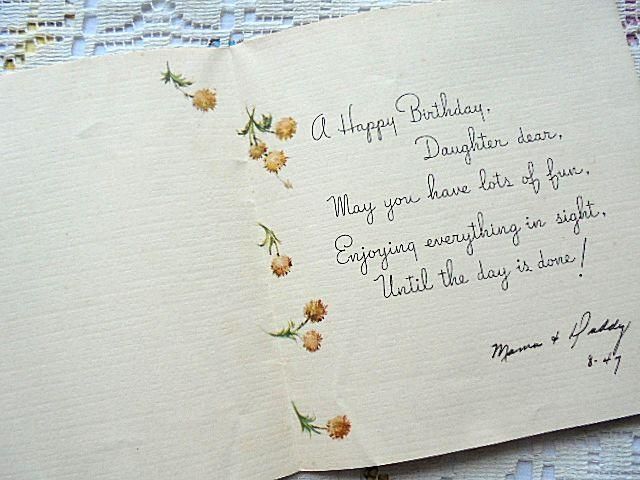 A Happy Birthday,
Daughter dear,
May you have lots of fun,
Enjoying everything in sight,
Until the day is done!
Mama & Daddy
8-47